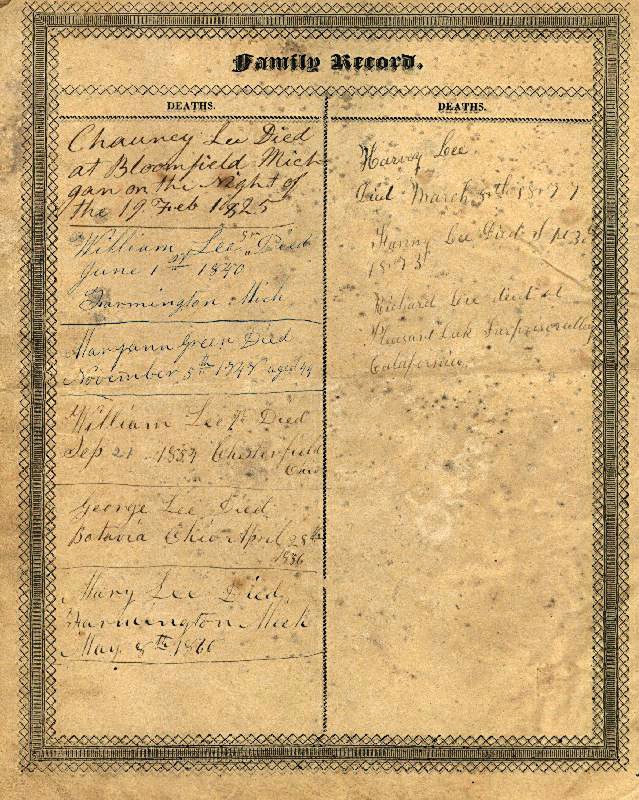 Family Record.
DEATHS.
Chauncy Lee Died
at Bloomfield Mich
gan on the Night of
the 19 Feb 1825
William Lee Sr Died
June 1st 1840
Farmington Mich
Maryann Green Died
November 5th aged 44
William Lee Jr Died
Sep 21 Chesterfield
George Lee Died
Batavia Ohio April 28th
1836
Mary Lee Died
Farmington Mich
May 8th 1860
DEATHS.
Harvey Lee
Died March
Fanny Lee Died
Richard Lee died at
Pleasant Lake
California